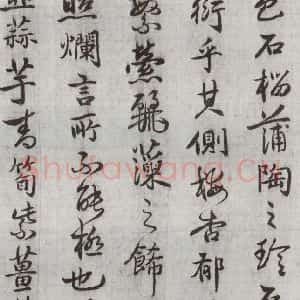 色石榴蒲陶之珍
衍乎其側梅杏郁
繁榮麗藻之飾
照爛言所不能極也
蒜芋青筍紫薑
Shufawang.CN